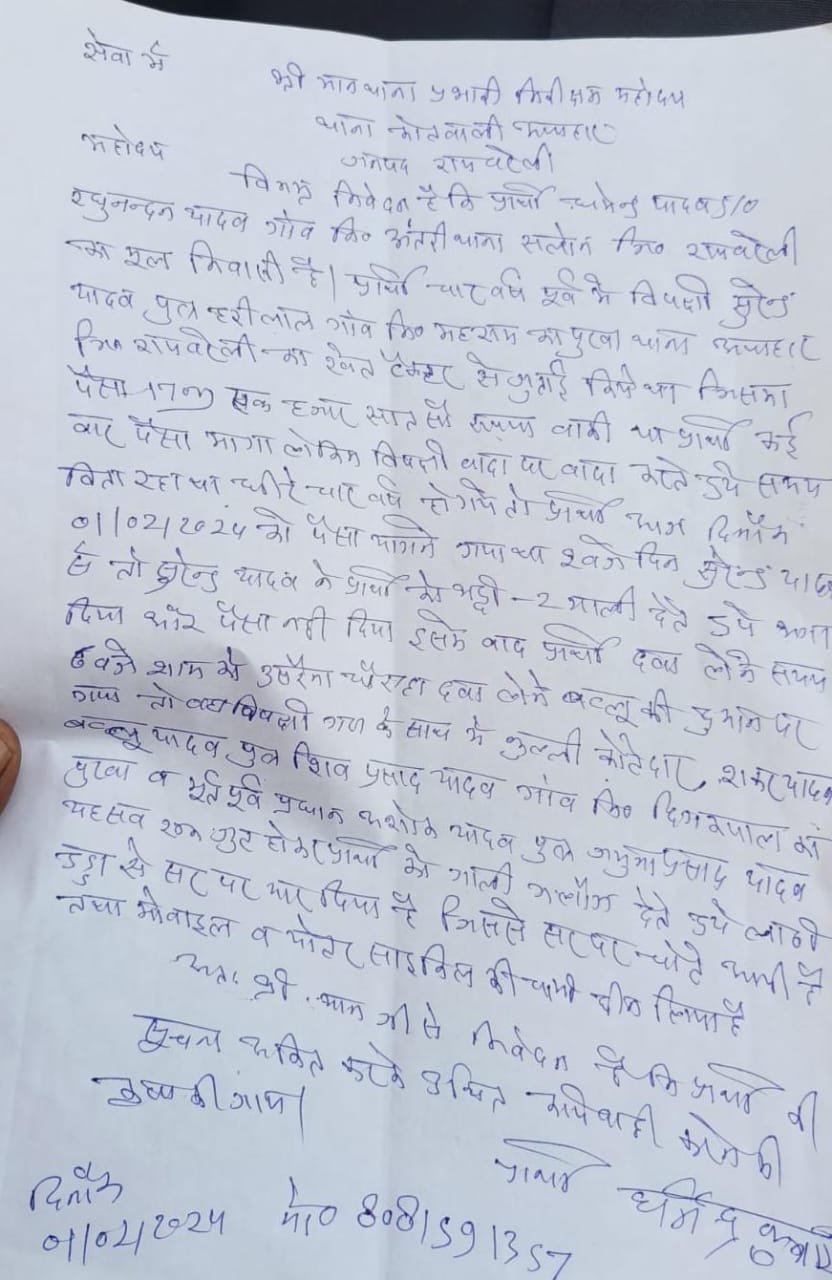 सेवा में
श्री मान थाना प्रभारी निरीक्षक महोदय
थाना कोतवाली ऊंचाहार
महोदय जनपद रायबरेली
विनम्र निवेदन है कि प्रार्थी धर्मेन्द्र यादव S/O
रघुनन्दन यादव गाँव नि० अंतरी थाना सलोन जि० रायबरेली
का मूल निवासी है। प्रार्थी चार वर्ष पूर्व में विपक्षी सुरेन्द्र
यादव पुत्र हरीलाल गाँव नि० का पुरवा थाना ऊंचाहार
जि० रायबरेली का खेत टैक्टर से जुताई किये था जिसका
पैसा 1700 एक हजार सात सौ रूपया बाकी था प्रार्थी कई
बार पैसा मागा लेकिन विपक्षी वादा पर वादा करते हुये समय
बिता रहा था धीरे चार वर्ष हो गये तो प्रार्थी आज दिनाँक
01/02/2024 को पैसा मागने गया था सुरेन्द्र यादव
तो सुरेन्द्र यादव ने प्रार्थी को भद्दी-2 गाली देते हुये भगा
दिया और पैसा नही दिया इसके बाद प्रार्थी दवा लेने समय
6 बजे शाम को चौराहा दवा लेने बल्लू की दुकान पर
गया तो विपक्षी गण के साथ में कोटेदार, यादव
बल्लू यादव पुत्र शिव प्रसाद यादव गाँव नि० का
पुरवा व भूर्तपूर्व प्रधान अशोक यादव पुत्र जमुना प्रसाद यादव
यह सब एक जुट होकर प्रार्थी को गाली गलौज देते हुये लाठी
डन्डा से सर पर मार दिया है जिससे सर पर चोटे आयी है
तथा मोबाइल व मोटर साइकिल की चाभी छीन लिया है
अतः श्री मान जी से निवेदन है कि प्रार्थी की
सूचना अंकित करके उचित कार्यवाही करने की
कृपा की जाय।
प्रार्थी धर्मेन्द्र कुमार
दिनाँक
01/02/2024 मो० 8081591357